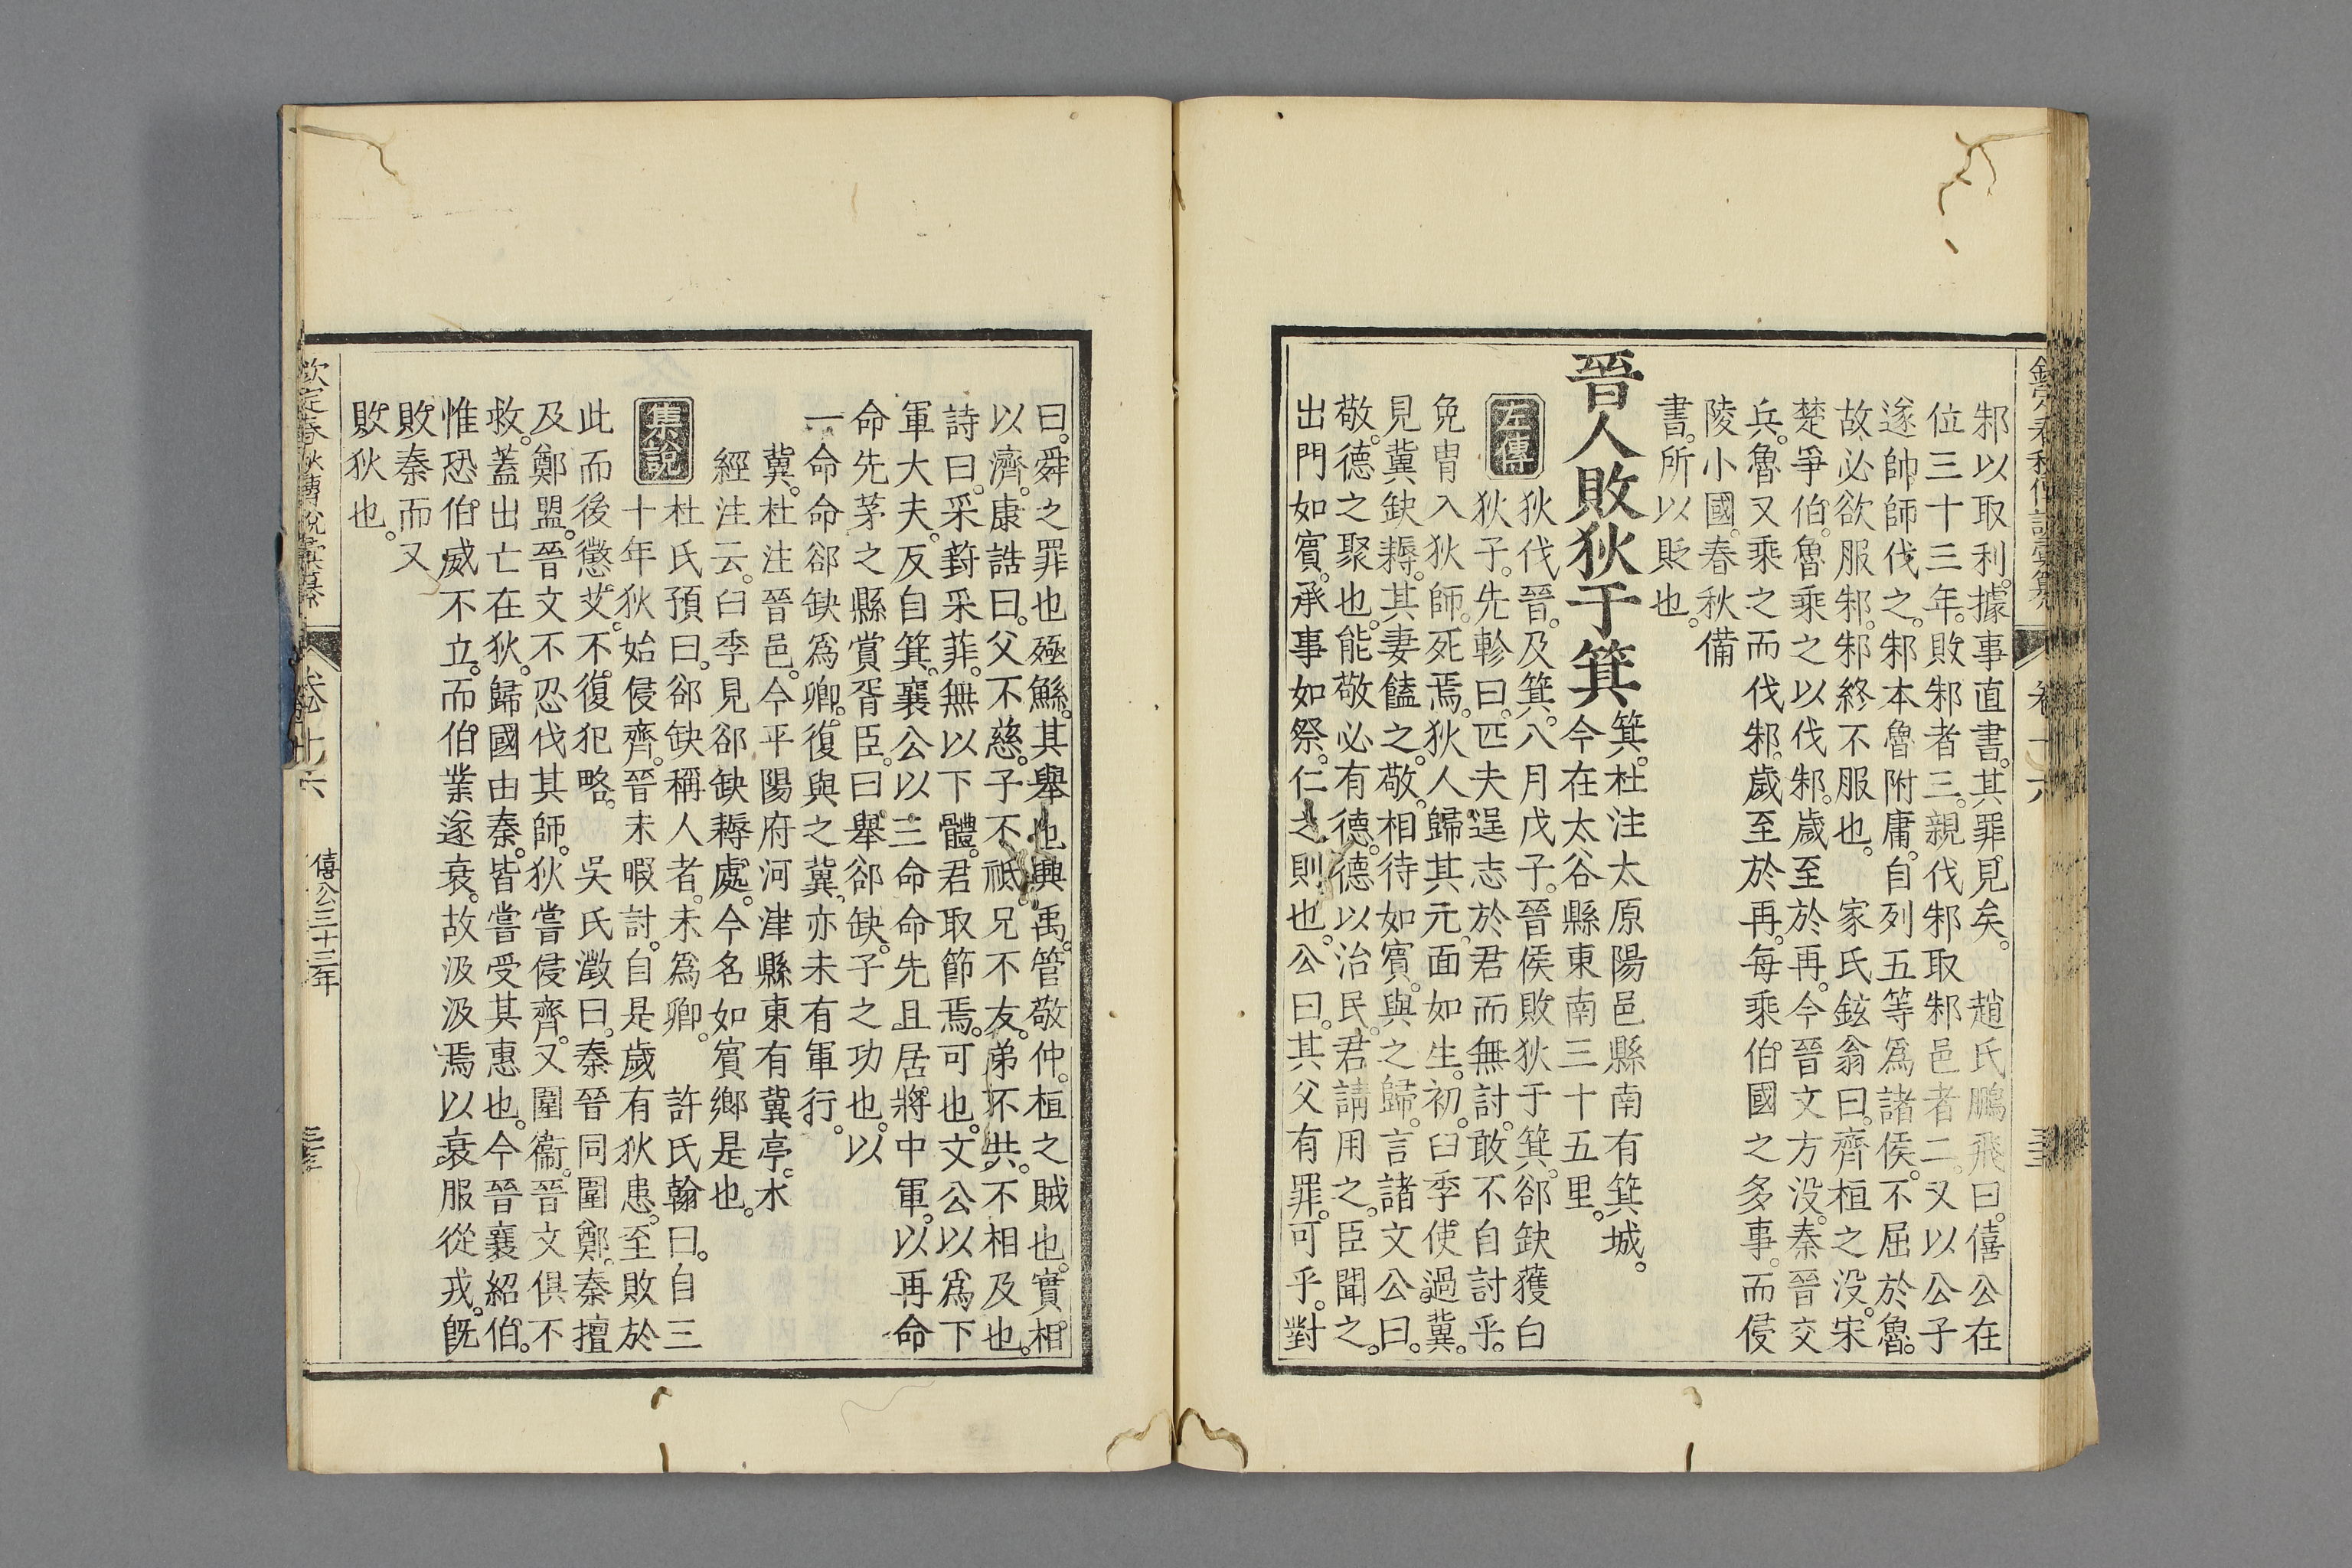 邾以取利。據事直書。其罪見矣。　趙氏鵬飛曰。僖公在
位三十三年。敗邾者三。親伐邾取邾邑者二。又以公子
遂帥師伐之。邾本魯附庸。自列五等爲諸侯。不屈於魯。
故必欲服邾。邾終不服也。　家氏鉉翁曰。齊桓之没。宋
楚爭伯。魯乘之以伐邾。歲至於再。今晉文方没。秦晉交
兵。魯又乘之而伐邾。歲至於再。每乘伯國之多事。而侵
陵小國。春秋備
書。所以貶也。
晉人敗狄于箕
箕。杜注太原陽邑縣南有箕城。
今在太谷縣東南三十五里。
左傳
狄伐晉。及箕。八月戊子。晉侯敗狄于箕。郤缺獲白
狄子。先軫曰。匹夫逞志於君而無討。敢不自討乎。
免冑入狄師。死焉。狄人歸其元。面如生。初。臼季使過冀。
見冀缺耨。其妻饁之。敬。相待如賓。與之歸。言諸文公曰。
敬。德之聚也。能敬必有德。德以治民。君請用之。臣聞之。
出門如賓。承事如祭。仁之則也。公曰。其父有罪。可乎。對
曰。舜之罪也殛鯀。其舉也興禹。管敬仲。桓之賊也。實相
以濟。康誥曰。父不慈。子不祗。兄不友。弟不共。不相及也。
詩曰。采葑采菲。無以下體。君取節焉。可也。文公以爲下
軍大夫。反自箕。襄公以三命命先且居。將中軍。以再命
命先茅之縣賞胥臣。曰。舉郤缺。子之功也。以
一命命郤缺爲卿。復與之冀。亦未有軍行。
冀。杜注晉邑。今平陽府河津縣東有冀亭。水
經注云。臼季見郤缺耨處。今名如賓鄉是也。
集說
杜氏預曰。郤缺稱人者。未爲卿。　許氏翰曰。自三
十年狄始侵齊。晉未暇討。自是歲有狄患。至敗於
此而後懲艾。不復犯略。　吳氏澂曰。秦晉同圍鄭。秦擅
及鄭盟。晉文不忍伐其師。狄嘗侵齊。又圍衞。晉文俱不
救。蓋出亡在狄。歸國由秦。皆嘗受其惠也。今晉襄紹伯。
惟恐伯威不立。而伯業遂衰。故汲汲焉以衰服從戎。旣
敗秦而又
敗狄也。
欽定春秋傳說彙纂
卷十六
僖公三十三年